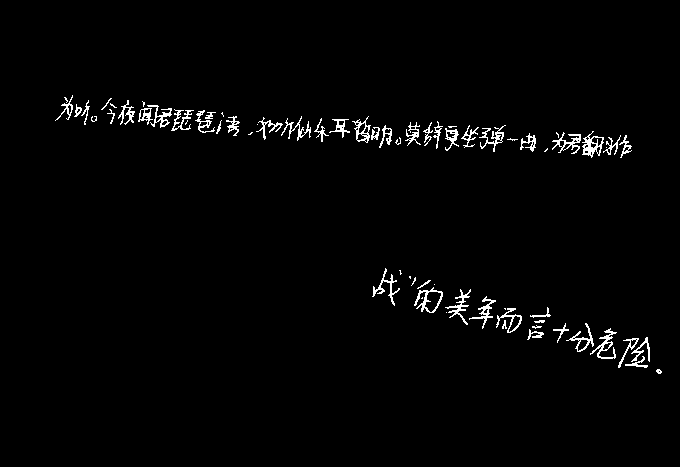 为听。今夜闻君琵琶语，如听仙乐耳暂明。莫辞更坐弹一曲，为君翻作
战”的美军而言十分危险。